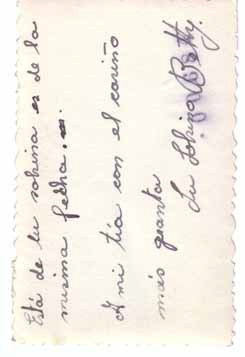 Está de tu sobrina es de la
misma fecha.
A mi tía con el cariño
más granta
Su Sobrina Betty.